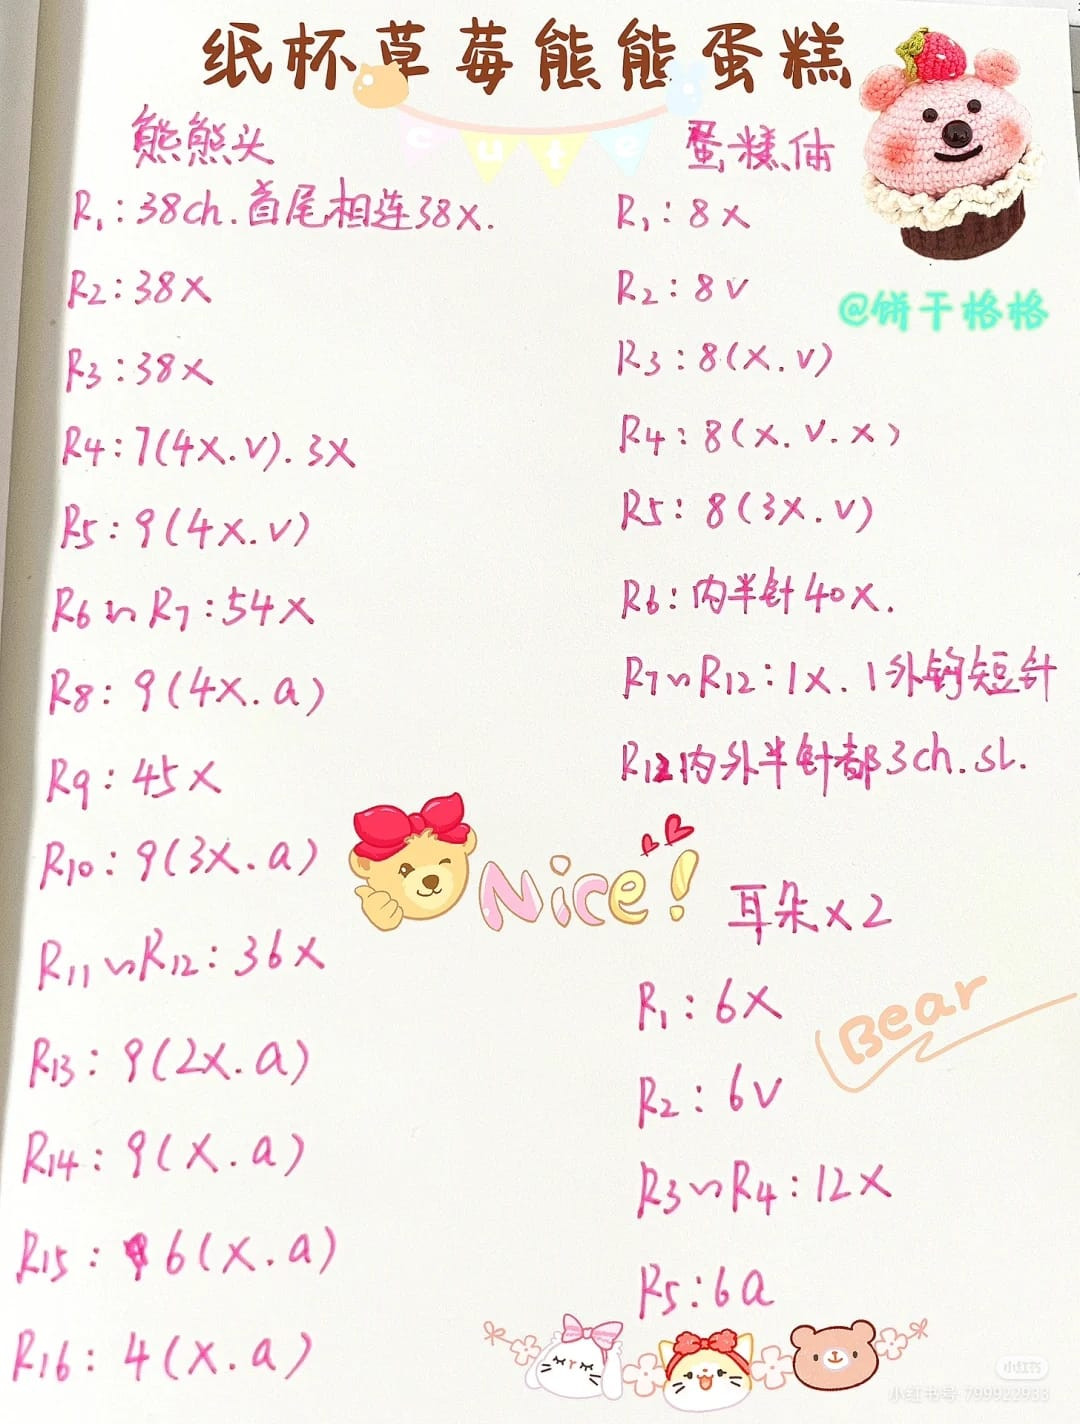 纸杯草莓熊熊蛋糕
cute
熊熊头
R1:38ch.首尾相连38x.
R2:38x
R3:38x
R4:7(4x.v).3x
R5:9(4x.v)
R6~R7:54x
R8:9(4x.a)
R9:45x
R10:9(3x.a)
R11~R12:36x
R13:9(2x.a)
R14:9(x.a)
R15:6(x.a)
R16:4(x.a)
蛋糕体
R1:8x
R2:8v
R3:8(x.v)
R4:8(x.v.x)
R5:8(3x.v)
R6:内半针40x.
R7~R12:1x.1外钩短针
R12内外半针都3ch.sl.
@饼干格格
Nice!
耳朵x2
R1:6x
R2:6v
R3~R4:12x
R5:6a
Bear
小红书
小红书号 799922933